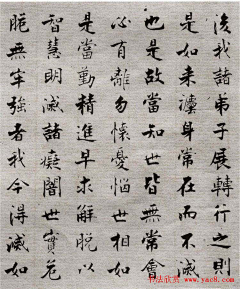 後我諸弟子展轉行之則
是如来灋身常在而不滅
也是故當知世皆無常會
必有離勿懷憂惱世相如
是當勤精進早求解脫以
智慧明滅諸癡闇世實危
脆無牢強者我今得滅如
书法欣赏 www.yac8.com